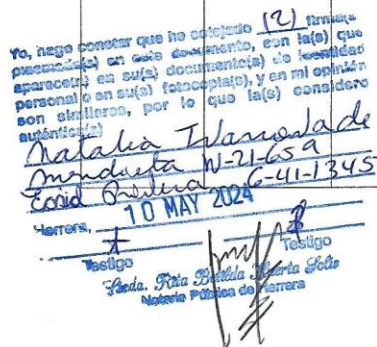 Yo, hago constar que he cotejado (2) firma(s)
plasmada(s) en este documento, con la(s) que
aparece(n) en su(s) documento(s) de identidad
personal o en su(s) fotocopia(s), y en mi opinión
son similares, por lo que la(s) considero
auténtica(s)
Natalia Ivanovla de
N-21-659
6-41-1345
10 MAY 2024
Herrera,
Testigo Testigo
Licda. Rita Huerta Solis
Notaria Pública de Herrera